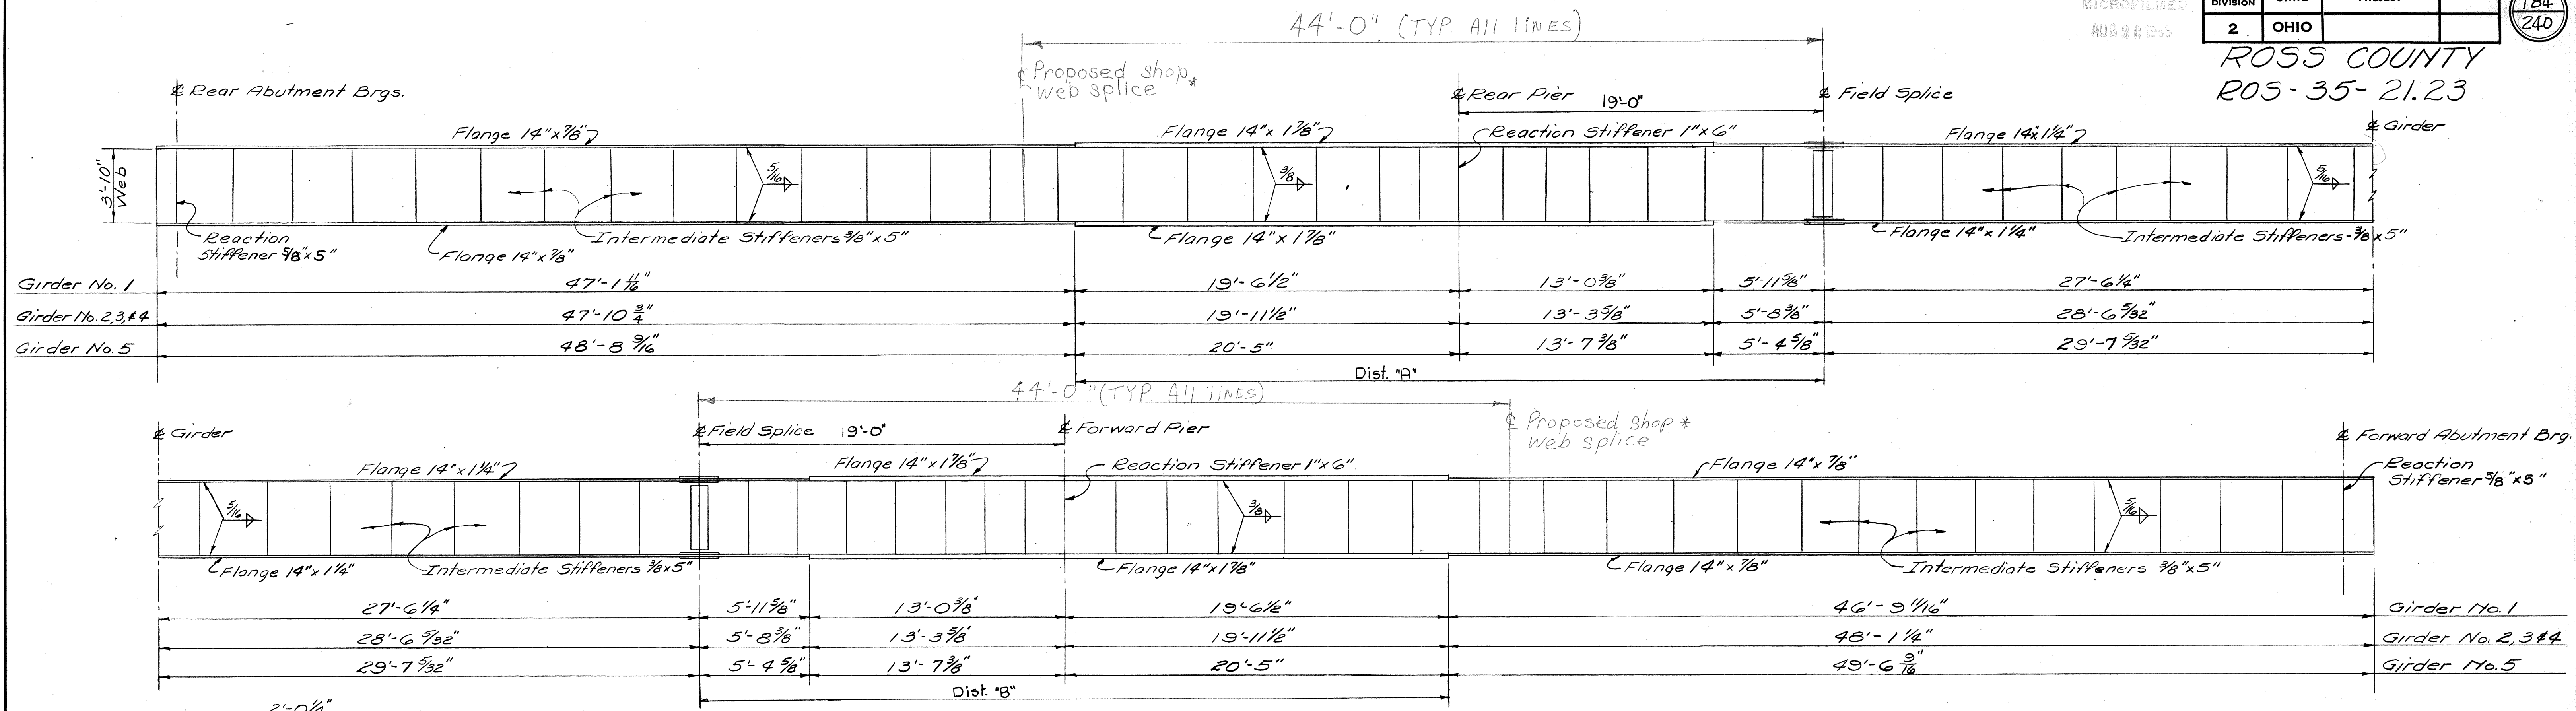 44'-0" (TYP. All lINES)
MICROFILMED
AUG
DIVISION
2 OHIO
184
240
ROSS COUNTY
ROS-35-21.23
℄ Rear Abutment Brgs.
℄ Proposed shop *
web splice
℄ Rear Pier 19'-0" ℄ Field Splice
℄ Girder
Flange 14"x7/8"
Flange 14"x 1 7/8"
Reaction Stiffener 1"x6"
Flange 14"x 1 1/4"
3'-10"
Web
5/16
3/8
5/16
Reaction
Stiffener 5/8"x5"
Flange 14"x 7/8"
Intermediate Stiffeners 3/8"x5"
Flange 14"x 1 7/8"
Flange 14"x 1 1/4"
Intermediate Stiffeners-3/8x5"
Girder No. 1 47'-1 11/16" 19'-6 1/2" 13'-0 3/8" 5'-11 5/8" 27'-6 1/4"
Girder No. 2,3,&4 47'-10 3/4" 19'-11 1/2" 13'-3 5/8" 5'-8 3/8" 28'-6 5/32"
Girder No. 5 48'-8 9/16" 20'-5" 13'-7 3/8" 5'-4 5/8" 29'-7 5/32"
Dist. "A"
44'-0" (TYP. All lINES)
℄ Girder
℄ Field Splice 19'-0" ℄ Forward Pier
℄ Proposed shop *
web splice
℄ Forward Abutment Brg.
Flange 14"x 1 1/4"
Flange 14"x 1 7/8"
Reaction Stiffener 1"x6"
Flange 14"x 7/8"
Reaction
Stiffener 5/8"x5"
5/16
3/8
5/16
Flange 14"x 1 1/4"
Intermediate Stiffeners 3/8x5"
Flange 14"x 1 7/8"
Flange 14"x 7/8"
Intermediate Stiffeners 3/8"x5"
27'-6 1/4" 5'-11 5/8" 13'-0 3/8" 19'-6 1/2" 46'-9 11/16" Girder No. 1
28'-6 5/32" 5'-8 3/8" 13'-3 5/8" 19'-11 1/2" 48'-1 1/4" Girder No. 2,3&4
29'-7 5/32" 5'-4 5/8" 13'-7 3/8" 20'-5" 49'-6 9/16" Girder No. 5
Dist. "B"
2'-0 1/4"